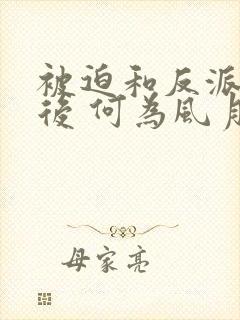 被迫和反派
後 何為風月
母家亮